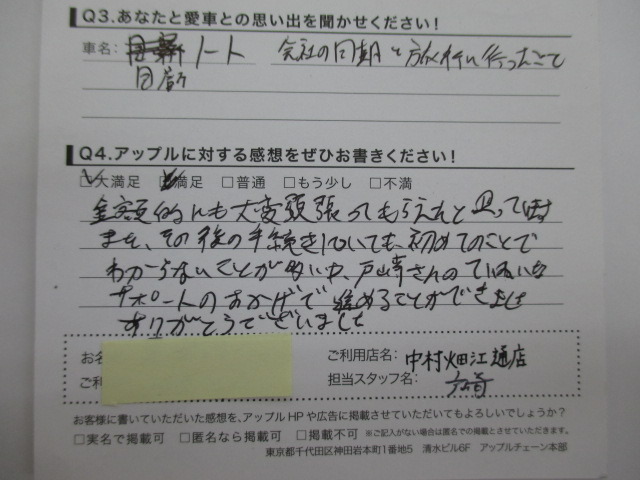 Q3.あなたと愛車との思い出を聞かせください!
車名: ノート 会社の同期と旅行に行ったこと
日産
Q4.アップルに対する感想をぜひお書きください!
☑大満足 ☑満足 □普通 □もう少し □不満
金額的にも大変頑張ってもらえたと思って居
ます、その後の手続きについても、初めてのことで
わからないことが多い中、戸崎さんのていねいな
サポートのおかげで進めることができました
ありがとうございました
お名
ご利用店名: 中村畑江通店
ご利
担当スタッフ名: 戸崎
お客様に書いていただいた感想を、アップルHPや広告に掲載させていただいてもよろしいでしょうか?
□実名で掲載可 □匿名なら掲載可 □掲載不可 ※ご記入がない場合は匿名での掲載とさせていただきます。
東京都千代田区神田岩本町1番地5 清水ビル6F アップルチェーン本部